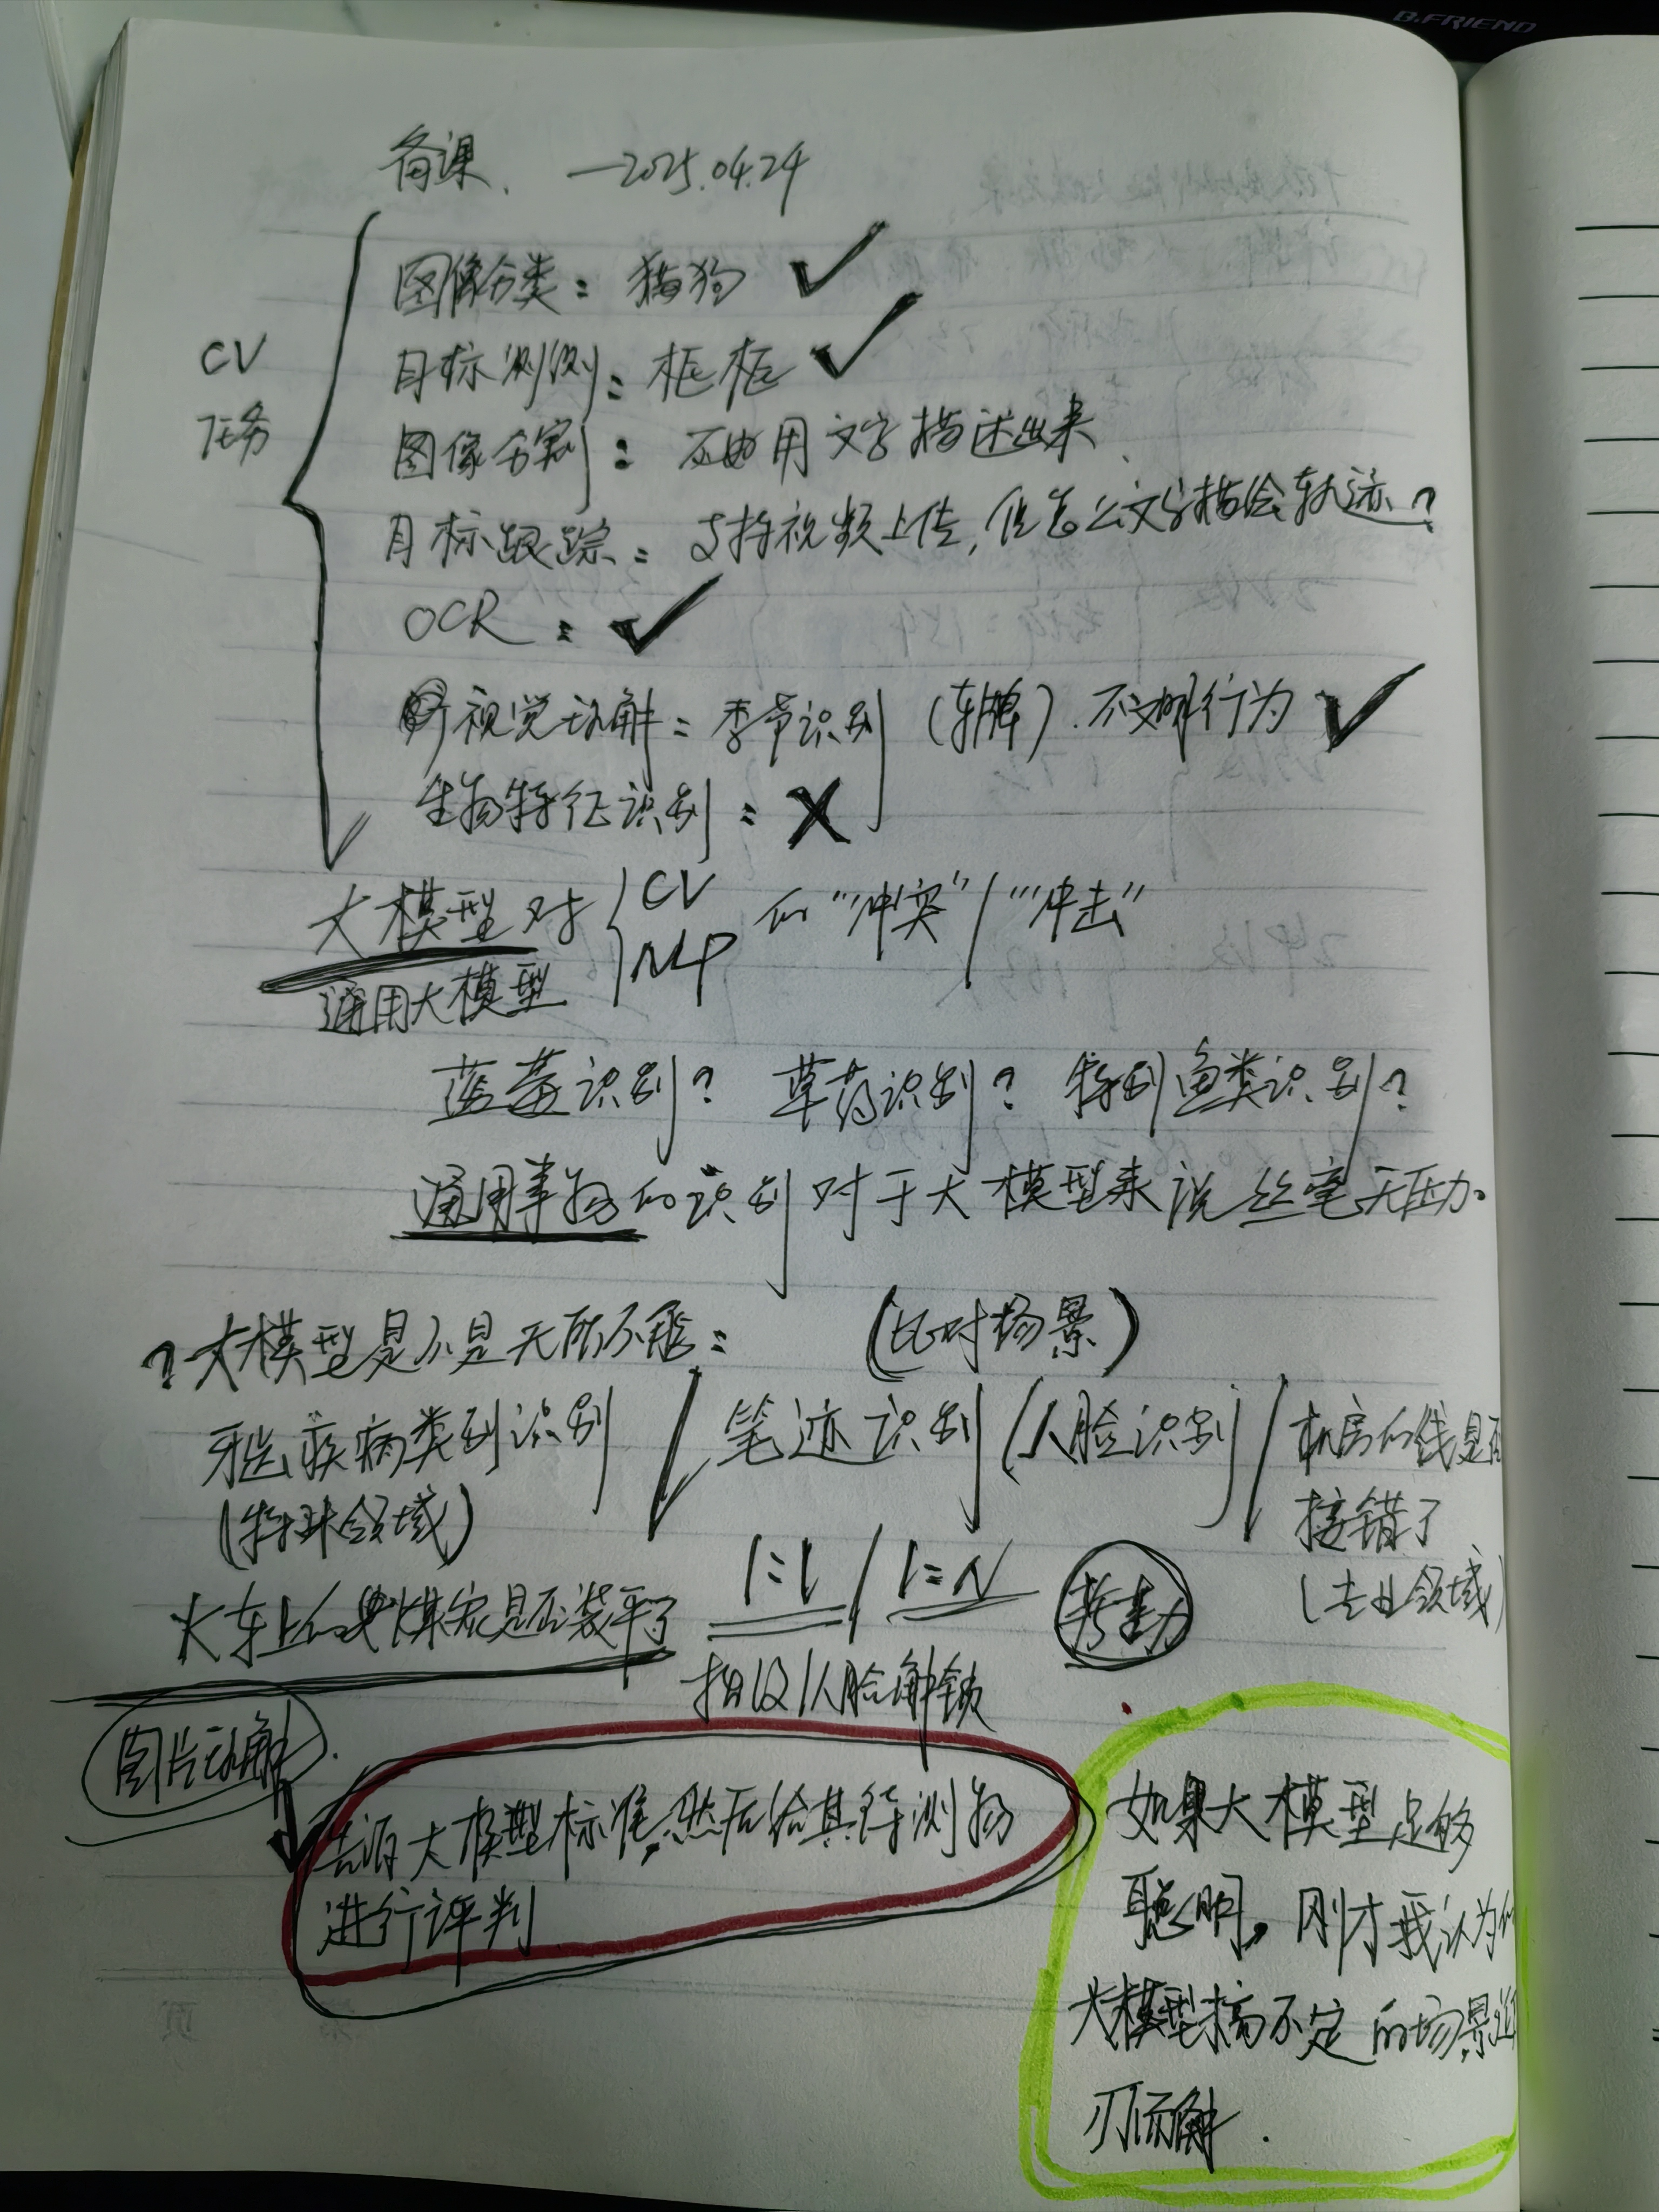 B.FRIEND
备课、 —2025.04.24
CV
任务
图像分类：猫狗 ✓
目标测测：框框 ✓
图像分割：无由用文字描述出来、
目标跟踪：支持视频上传，但怎么文字描绘轨迹？
OCR：✓
视觉理解：季节识别（车牌）.不文明行为 ✓
生物特征识别：X
大模型对 { CV NLP 的“冲突”/“冲击”
通用大模型
蓝莓识别？ 草药识别？ 特别鱼类识别？
通用事物的识别对于大模型来说丝毫无压力。
？大模型是不是无所不能： （比对场景）
牙齿疾病类别识别 / 笔迹识别/人脸识别/ 机房的线是否
（特殊领域） 接错了
（专业领域）
火车上的煤是否装平了 1:1 / 1:N 考勤
手机人脸解锁
图片理解.
告诉大模型标准，然后给其待测物
进行评判
如果大模型足够
聪明，刚才我认为
大模型搞不定的场景迎
刃而解.